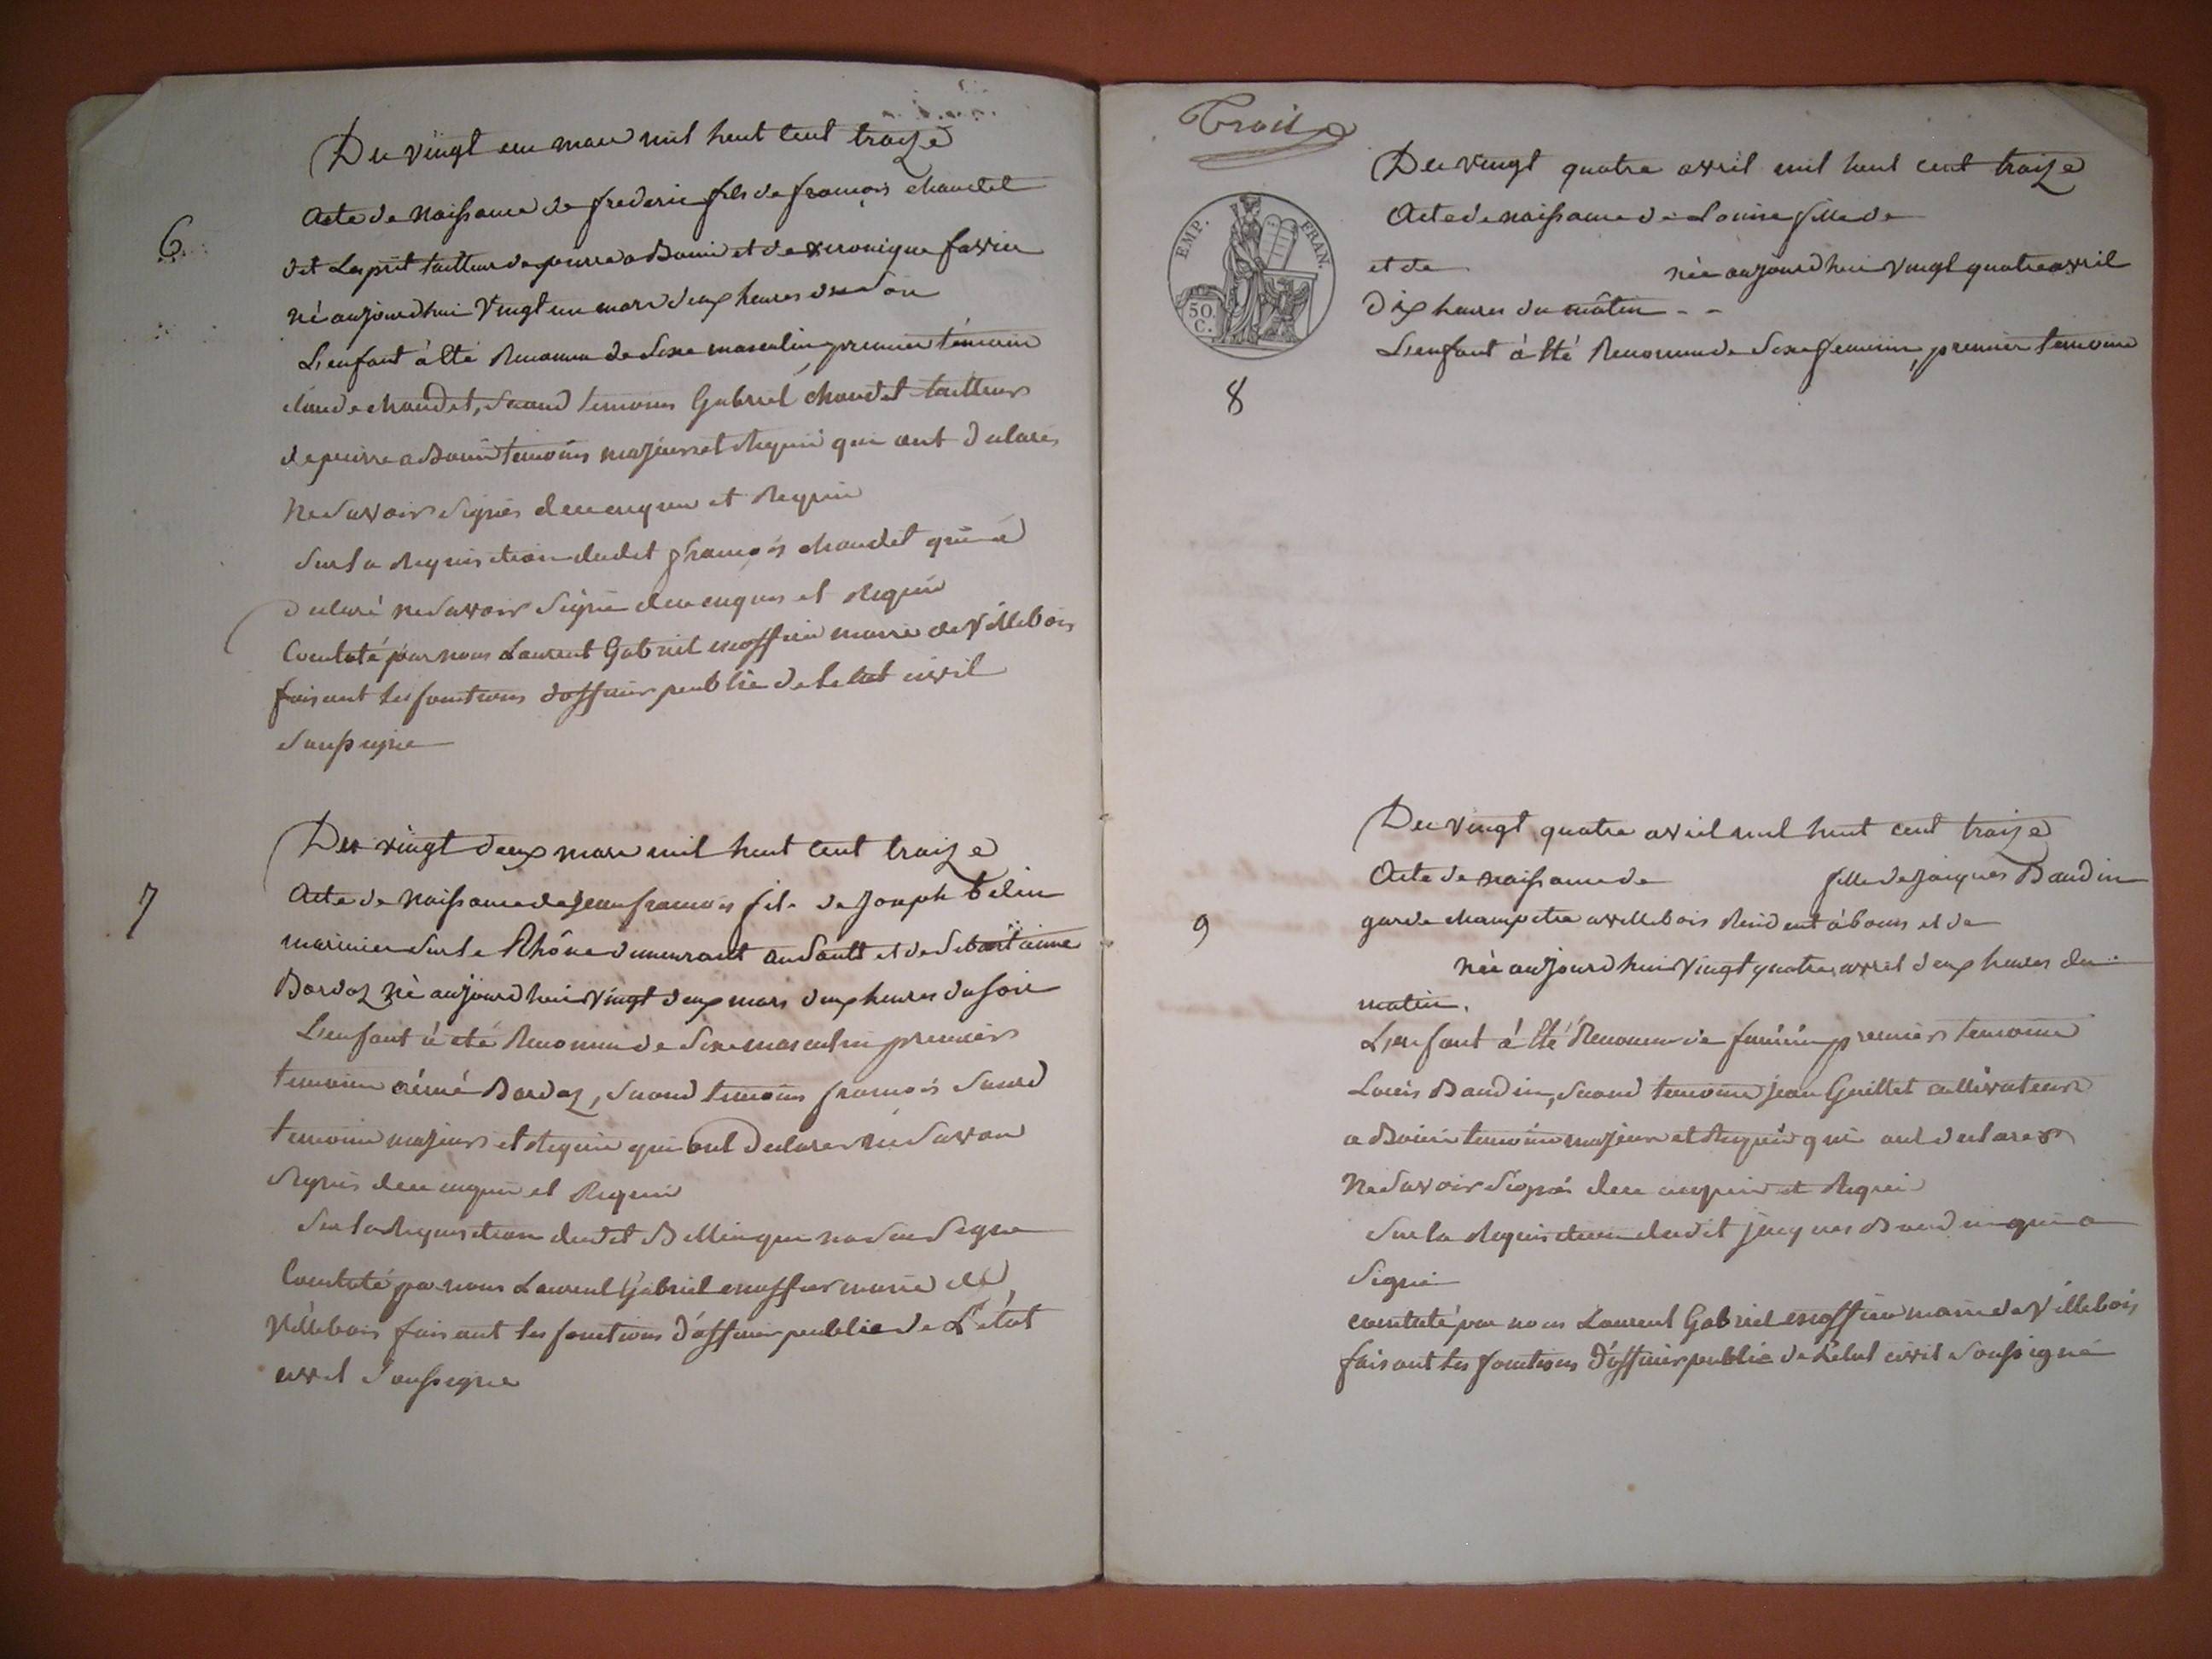 Du vingt un mars mil huit cent traize
6
Acte de Naissance de frederic fils de françois chaudet
dit Lesprit tailleur de pierre a Bouis et de veronique favier
né aujourdhui Vingt un mars deux heures du soir
L'enfant à été Reconnu de Sexe masculin premier témoin
claude chaudet, second temoins Gabriel chaudet tailleurs
de pierre a Bouis temoins majeurs et Requis qui ont declarés
Ne Savoir Signés de ce enquis et Requis
Sur la Requisition dudit françois chaudet qui a
declaré ne Savoir Signé de ce enquis et Requis
Constaté par nous Laurent Gabriel maire de Villebois
faisant les fonctions d'officier public de L'etat civil
Soussigné
Du vingt deux mars mil huit cent traize
7
Acte de Naissance de Jean francois fils de Joseph Belin
marinier sur le Rhône demeurant au Sault et de
Bardoz né aujourdhui vingt deux mars deux heures du soir
L'enfant à eté Reconnu de Sexe masculin premier
temoin Bordoz, second temoins francois
temoins majeurs et Requis qui ont Declarer ne Savoir
Signés de ce enquis et Requis
Sur la Requisition dudit Bellin qui na Su Signe
Constaté par nous Laurent Gabriel maire de
Villebois faisant les fonctions d'officier public de L'état
civil Soussigné
Trois
Du vingt quatre avril mil huit cent traize
Acte de naissance de Louise fille de
EMP. FRAN.
50 C.
et de née aujourdhui Vingt quatre avril
Dix heures du mâtin - -
L'enfant à été Reconnu de Sexe feminin, premier temoins
8
Du vingt quatre avril mil huit cent traize
Acte de naissance de fille de Jacques Baudin
garde champetre a villebois Résident à bouis et de
9
née aujourdhui Vingt quatre avril deux heures du
matin.
L'enfant à été Reconnu de féminin premiers temoins
Louis Baudin, second temoins Jean Guillet cultivateurs
a Bouis temoins majeur et Requis qui ont declarer
Ne Savoir Signés de ce enquis et Requis
Sur la Requisition dudit jacques Baudin qui a
Signé
constaté par nous Laurent Gabriel maire de Villebois
faisant les fonctions d'officier public de L'etat civil Soussigné